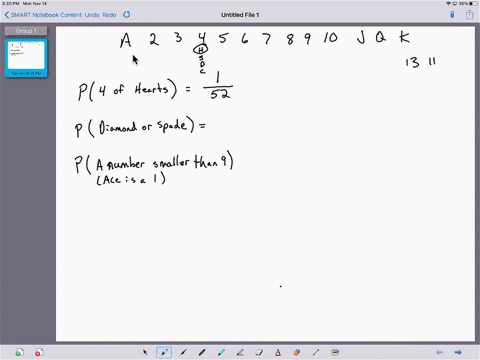 8:20 PM Mon Nov 14
Untitled File 1
SMART Notebook Content Undo Redo
Group 1
A 2 3 4 5 6 7 8 9 10 J Q K
H
S
D
C
13 11
P(4 of Hearts) = 1/52
P(Diamond or Spade) =
P(A number smaller than 9)
(Ace is a 1)